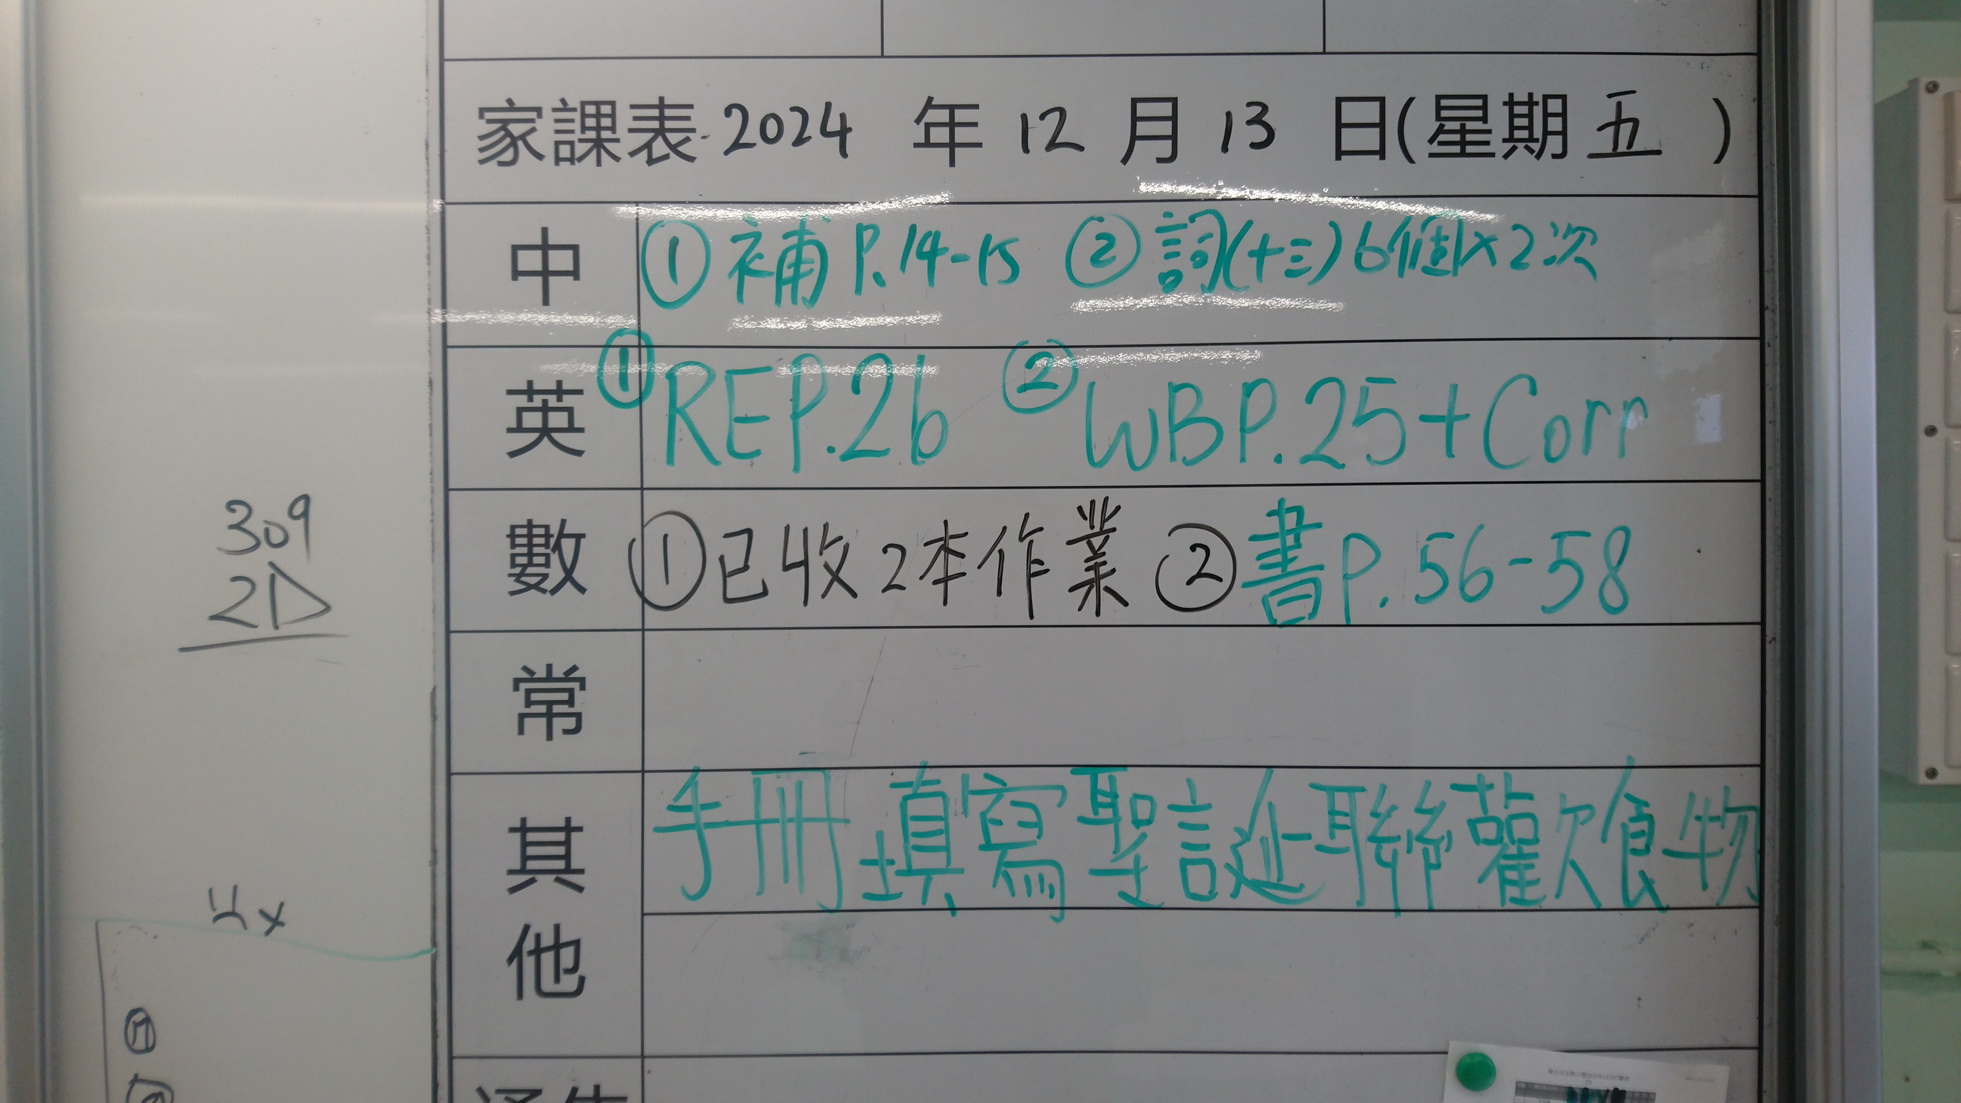 家課表 2024 年 12 月 13 日(星期五)
中 ①補P.14-15 ②詞(十三)6個×2次
英 ①REP.26 ②WBP.25+Corr
數 ①已收2本作業 ②書P.56-58
常
其他 手冊填寫聖誕聯歡飲食物
309
2D